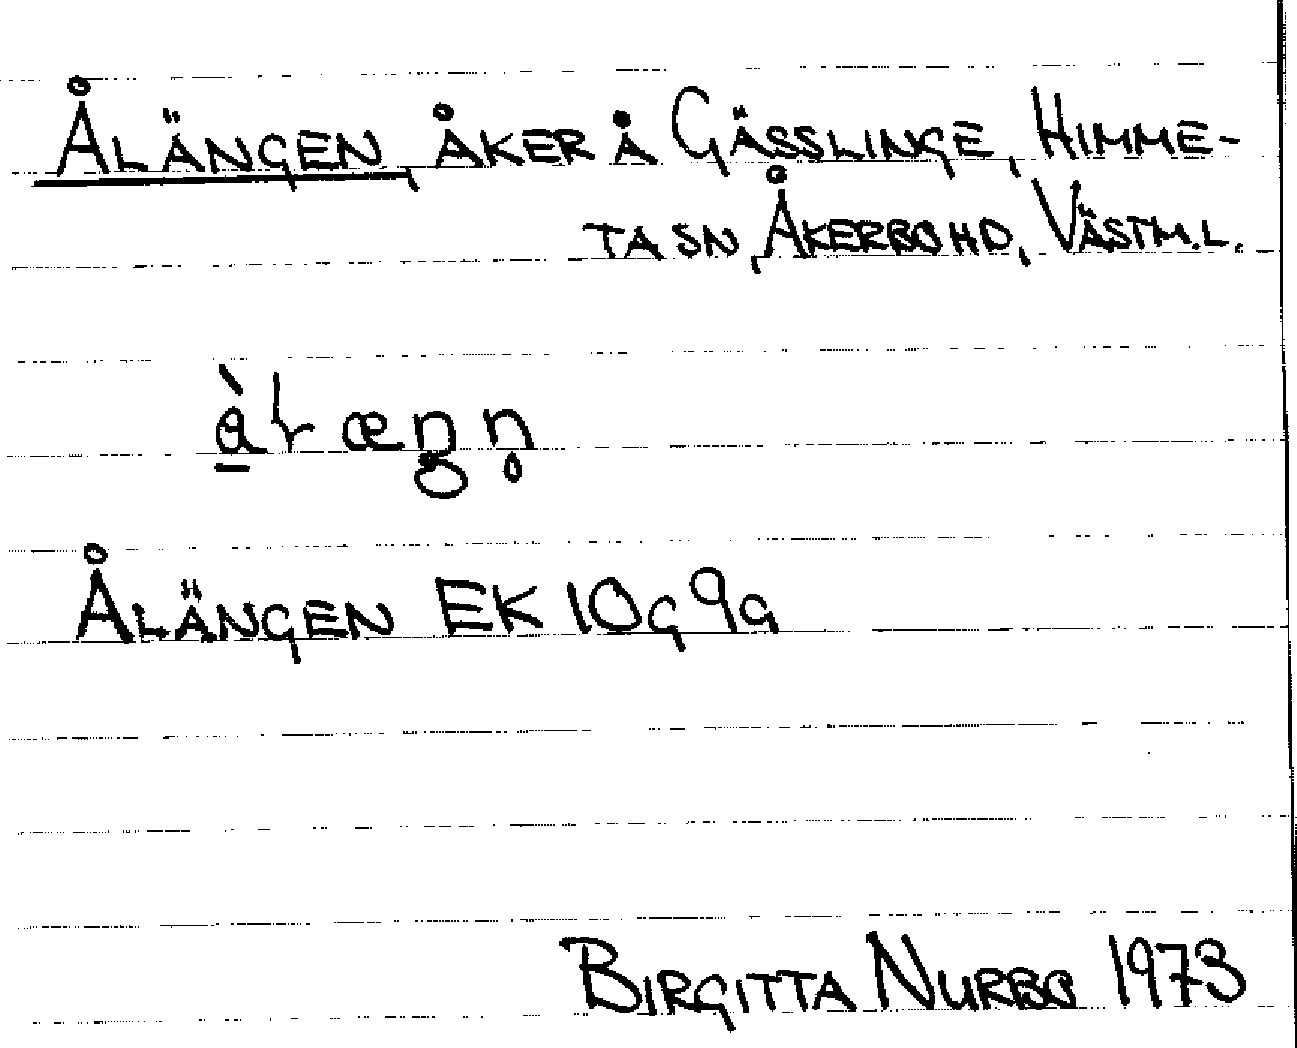 ÅLÄNGEN, ÅKER Å GÄSSLINGE, HIMME-
TA SN, ÅKERBO HD, VÄSTM.L.
ÅLÄNGEN EK 10G 9a
BIRGITTA NURBO 1973